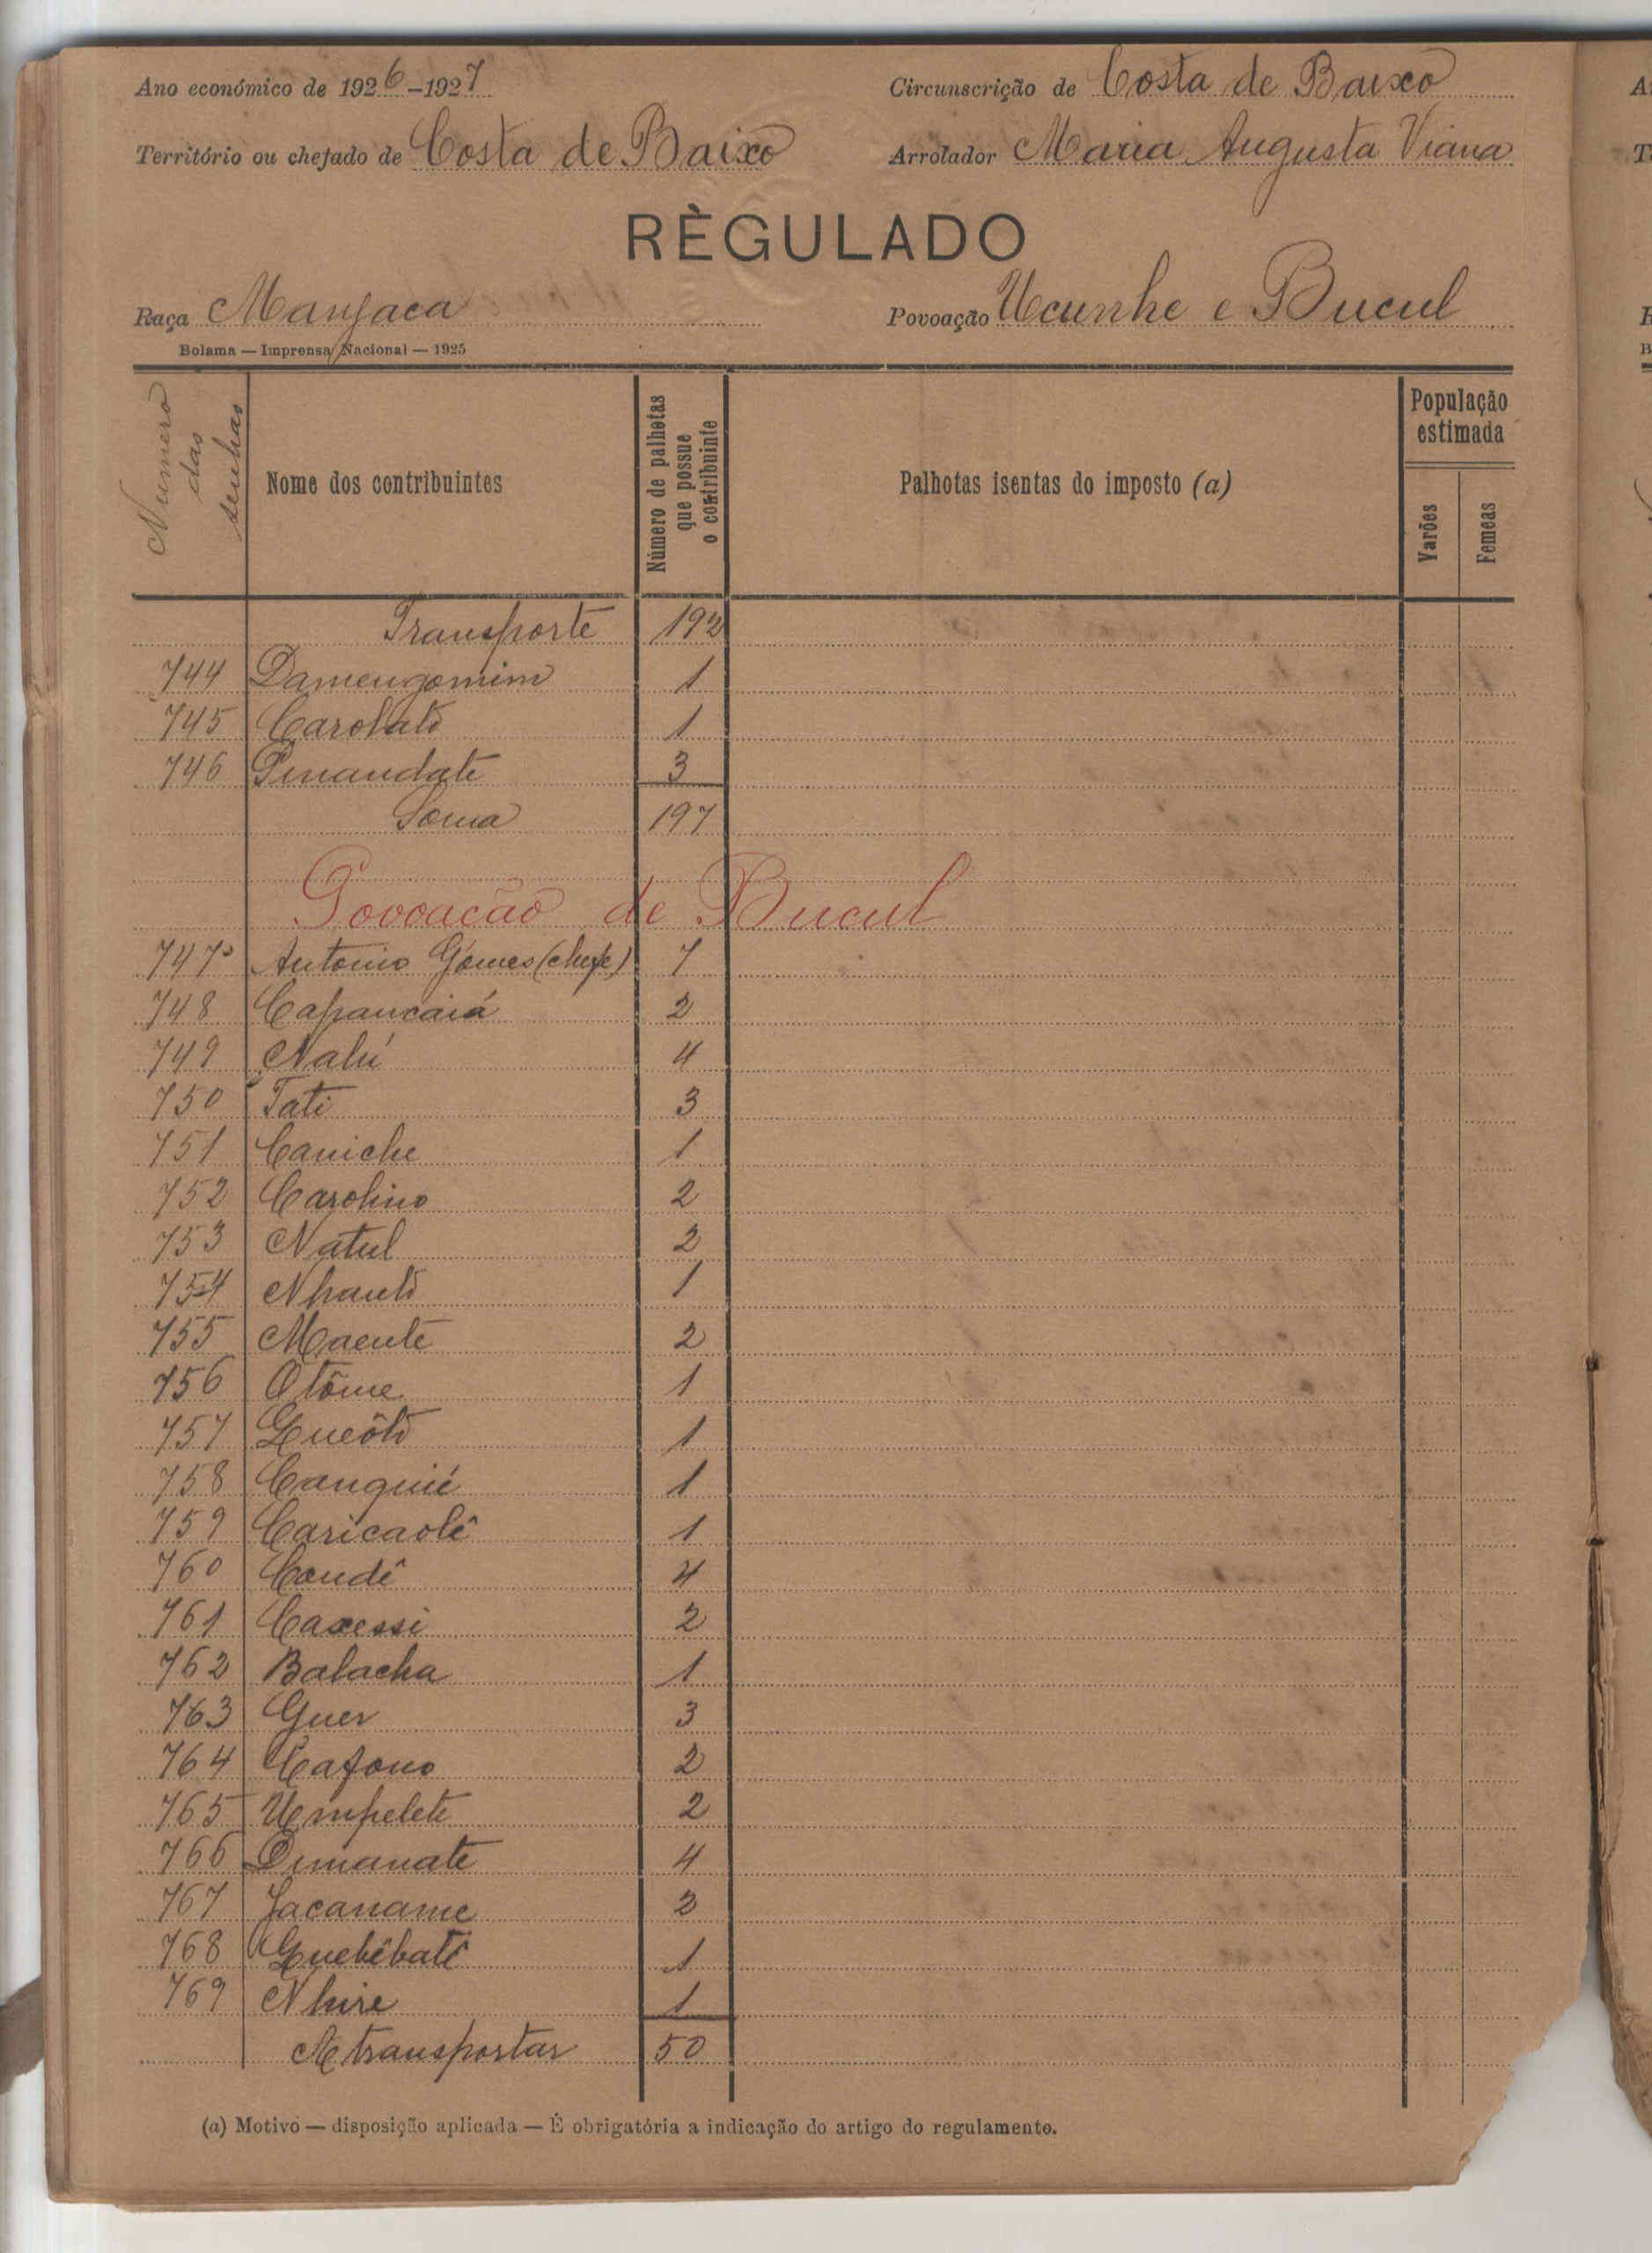 Ano económico de 1926-1927
Circunscrição de Costa de Baixo
Território ou chefado de Costa de Baixo
Arrolador Maria Augusta Viana
RÈGULADO
Raça Manjaca
Povoação Ucunhe e Bucul
Bolama — Imprensa Nacional — 1925
Numero das senhas
Nome dos contribuintes
Número de palhotas que possue o contribuinte
Palhotas isentas do imposto (a)
População estimada
Varões
Femeas
Transporte 192
744 Damengomim 1
745 1
746 3
Soma 197
Povoação de Bucul
747 Antonio Gomes (chefe) 7
748 Capancaiá 2
749 Nalú 4
750 Tati 3
751 Caniche 1
752 Carolino 2
753 Natul 2
754 1
755 Maente 2
756 Otôme 1
757 1
758 Canguié 1
759 Caricaolê 1
760 Condê 4
761 Caxessi 2
762 Balacha 1
763 Guer 3
764 Cafono 2
765 Umpelete 2
766 Dimanate 4
767 Jacaname 2
768 1
769 Nhire 1
A transportar 50
(a) Motivo — disposição aplicada — É obrigatória a indicação do artigo do regulamento.